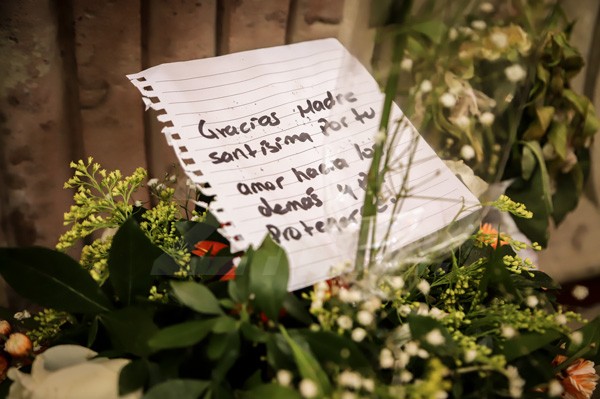 Gracias Madre
santísima Por tu
amor hacia los
demás y
Proteger